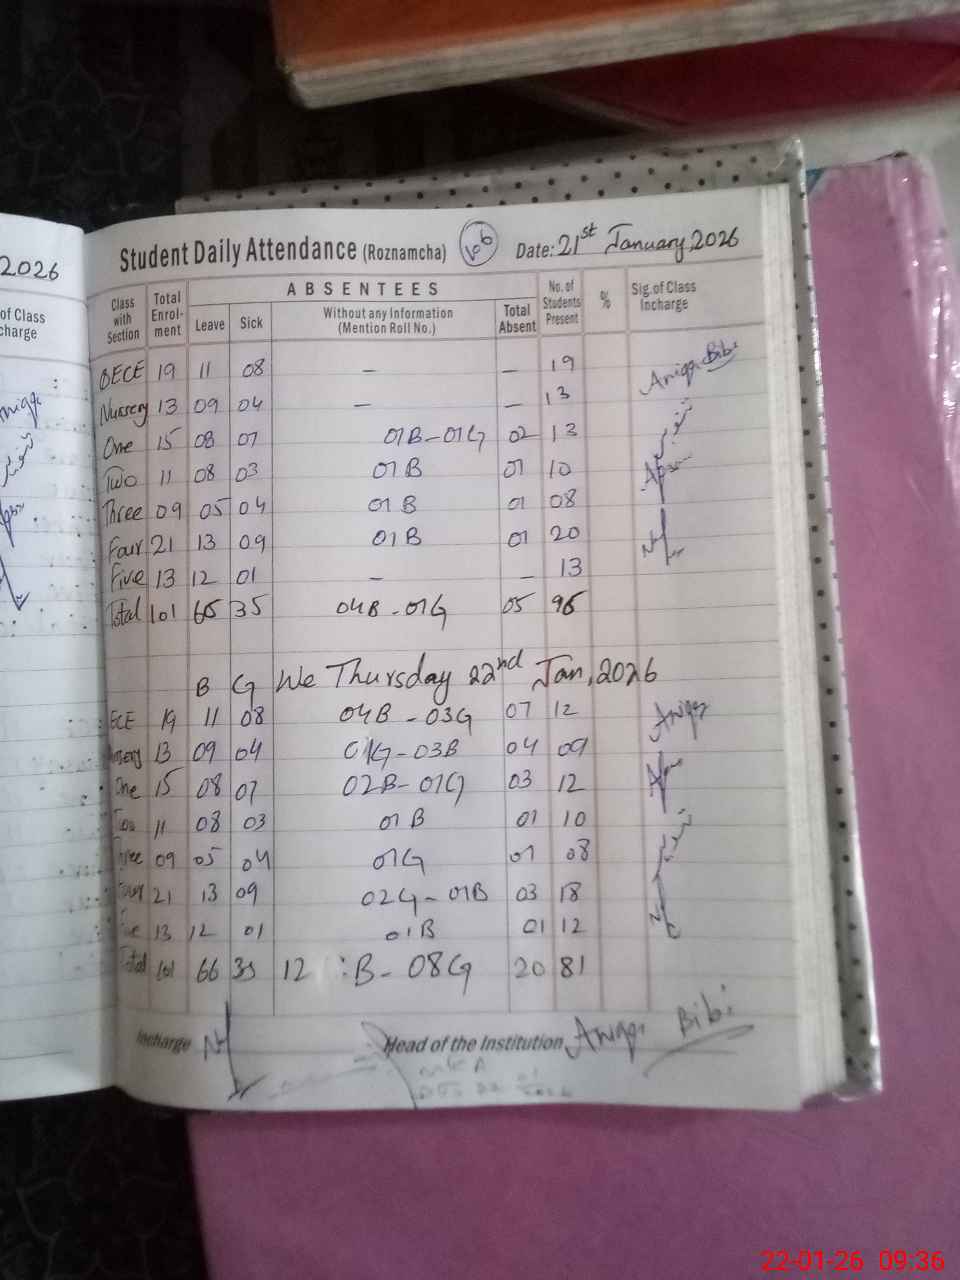 2026
of Class
charge
Student Daily Attendance (Roznamcha) 106 Date: 21st January, 2026
Class with Section Total Enrol-ment ABSENTEES No. of Students Present % Sig. of Class Incharge
Leave Sick Without any Information (Mention Roll No.) Total Absent
ECE 19 11 08 – – 19 Aniqa Bibi
Nursery 13 09 04 – – 13
One 15 08 07 01B-01G 02 13
Two 11 08 03 01B 01 10
Three 09 05 04 01B 01 08
Four 21 13 09 01B 01 20
Five 13 12 01 – – 13
Total 101 66 35 04B-01G 05 96
B G We Thursday 22nd Jan, 2026
ECE 19 11 08 04B-03G 07 12 Aniqa
Nursery 13 09 04 01G-03B 04 09
One 15 08 07 02B-01G 03 12
Two 11 08 03 01B 01 10
Three 09 05 04 01G 01 08
Four 21 13 09 02G-01B 03 18
Five 13 12 01 01B 01 12
Total 101 66 35 12 :B-08G 20 81
Incharge Head of the Institution Aniqa Bibi
22-01-26 09:36